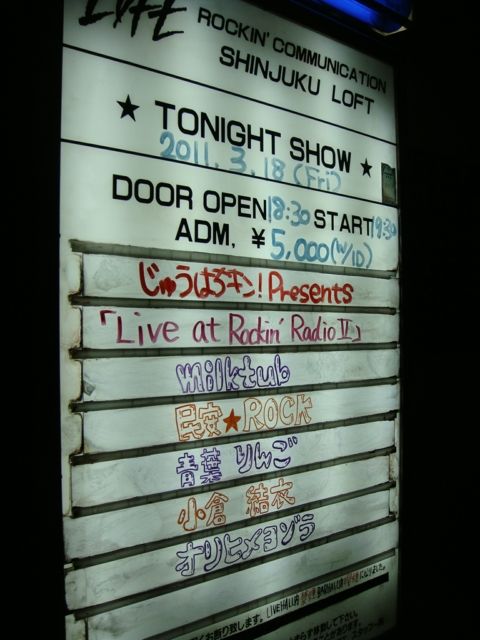 LIFE
ROCKIN' COMMUNICATION
SHINJUKU LOFT
★ TONIGHT SHOW ★
2011. 3. 18 (Fri)
DOOR OPEN 18:30 START 19:30
ADM, ¥ 5,000 (w/1D)
じゅうはちキン! Presents
「Live at Rockin' Radio Ⅱ」
milktub
民安★ROCK
青葉 りんご
小倉 結衣
オリヒメヨゾラ
お断り致します。